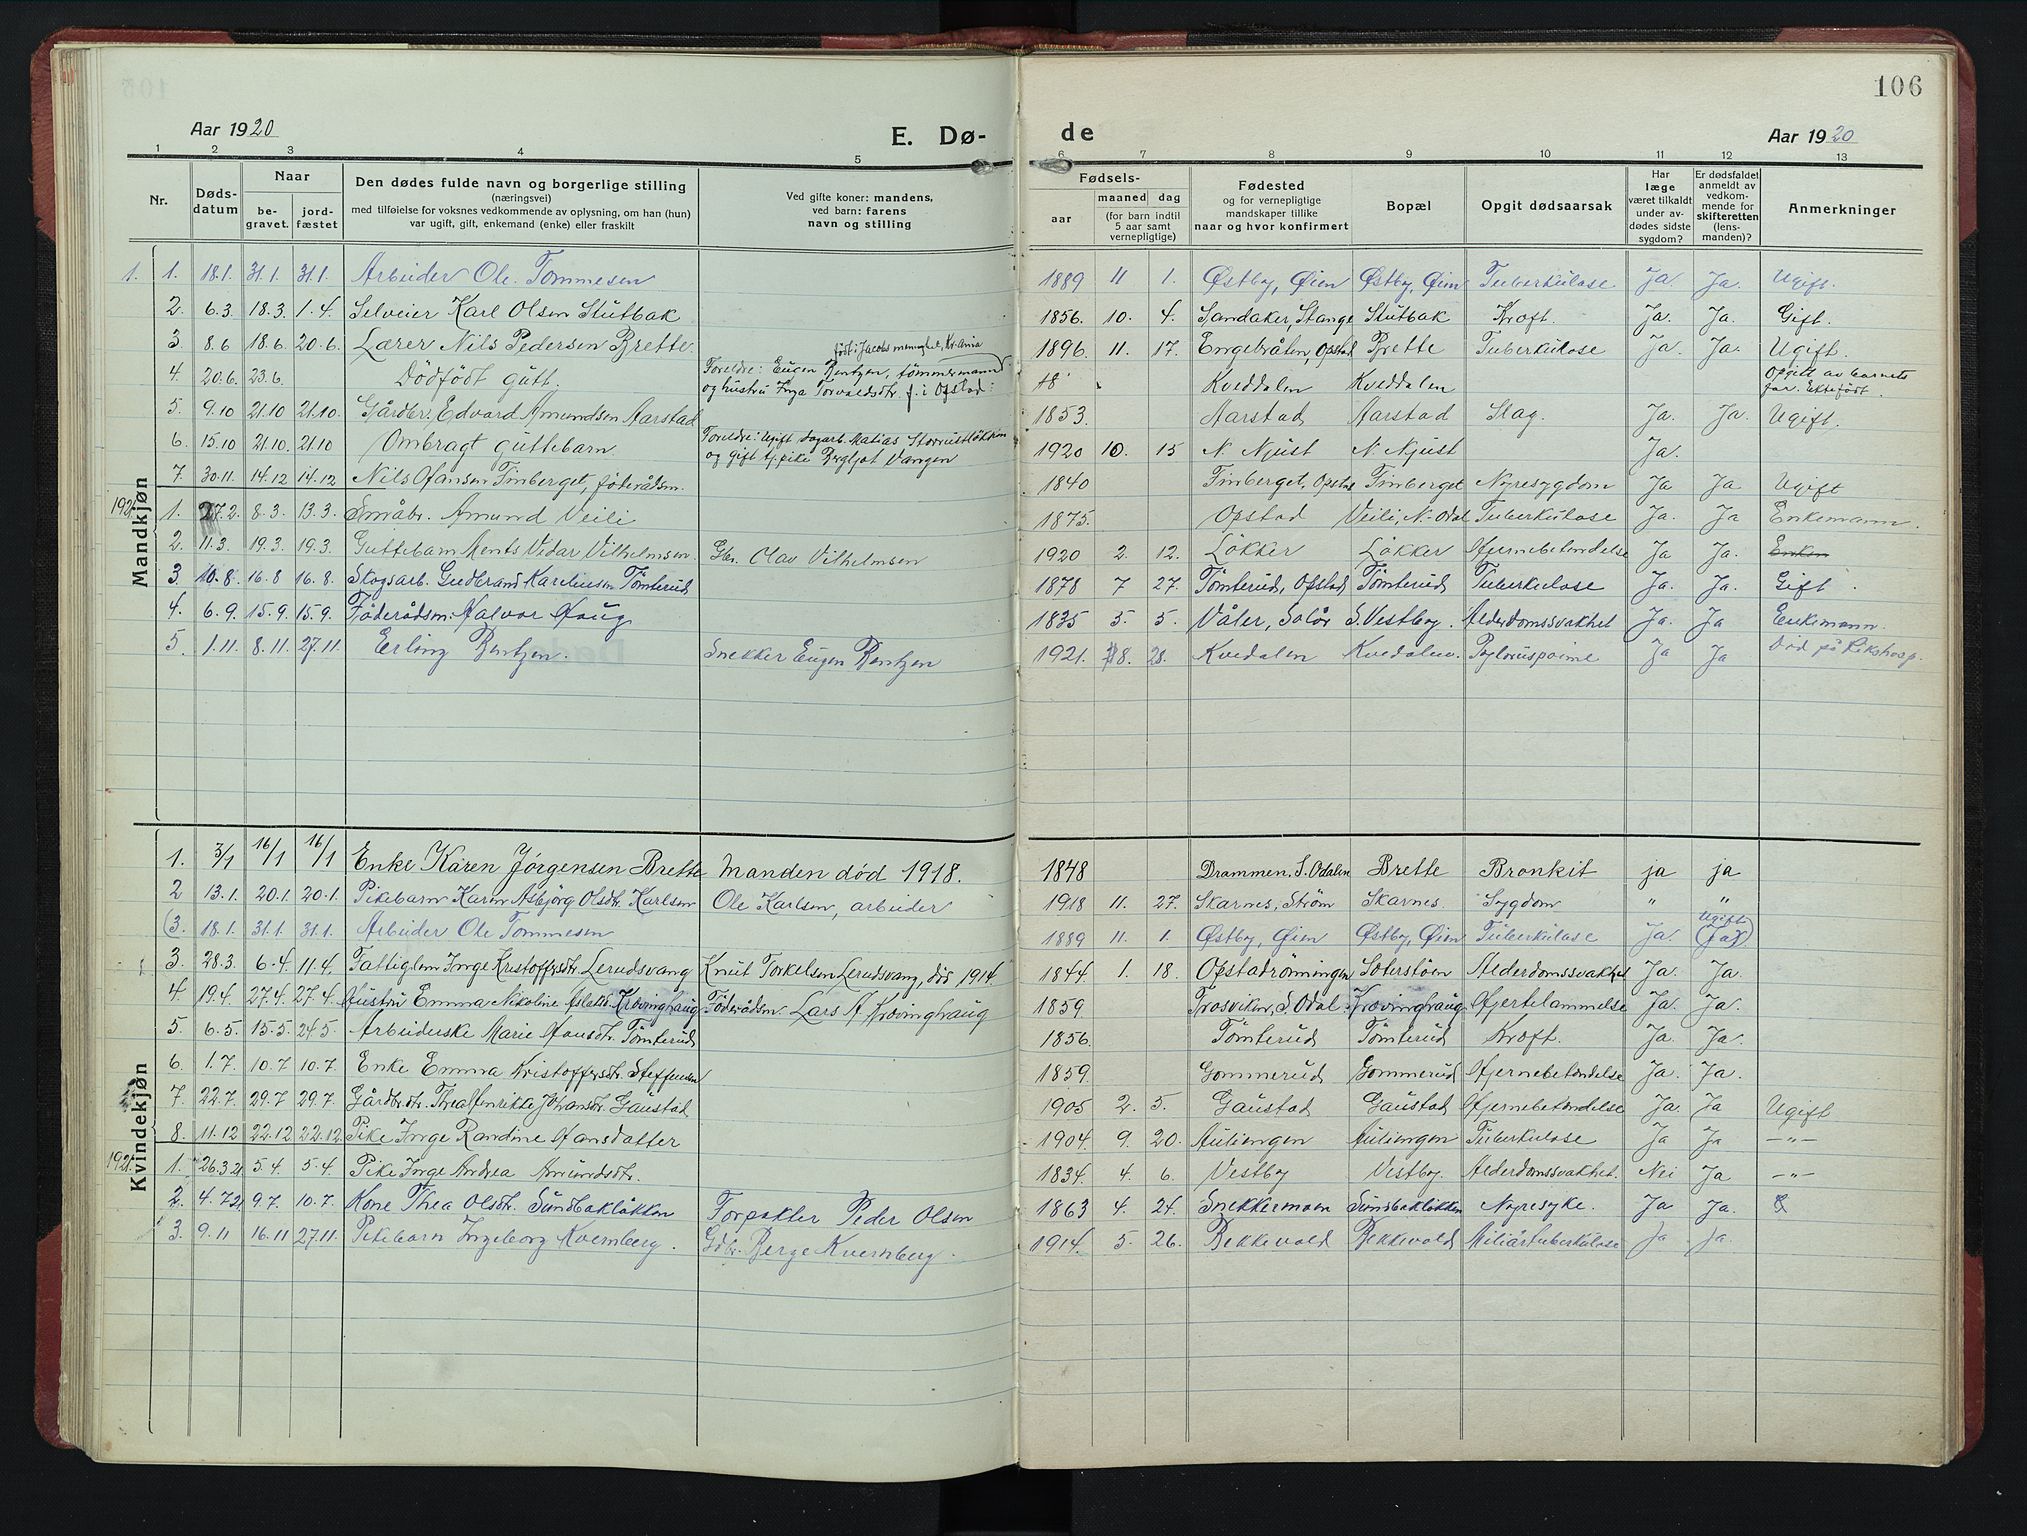 106
Aar 1920
E. Dø-
de
Aar 1920
1 2 3 4 5 6 7 8 9 10 11 12 13
Nr.
Døds-
datum
Naar
be-
gravet.
jord-
fæstet
Den dødes fulde navn og borgerlige stilling
(næringsvei)
med tilføielse for voksnes vedkommende av oplysning, om han (hun)
var ugift, gift, enkemand (enke) eller fraskilt
Ved gifte koner: mandens,
ved barn: farens
navn og stilling
Fødsels-
aar
maaned dag
(for barn indtil
5 aar samt
vernepligtige)
Fødested
og for vernepligtige
mandskaper tillike
naar og hvor konfirmert
Bopæl
Opgit dødsaarsak
Har
læge
været tilkaldt
under av-
dødes sidste
sygdom?
Er dødsfaldet
anmeldt av
vedkom-
mende for
skifteretten
(lens-
manden)?
Anmerkninger
Mandkjøn
1. 1. 18.1. 31.1. 31.1. Arbeider Ole Tommesen 1889 11 1. Østby, Øien Østby, Øien Tuberkulose Ja. Ja. Ugift.
2. 6.3. 18.3. 1.4. Selveier Karl Olsen Slutbak 1856. 10. 4. Sandaker, Stange Slutbak Kræft. Ja. Ja. Gift.
3. 8.6 18.6. 20.6. Lærer Nils Pedersen Brette. 1896. 11. 17. Engebråten, Opstad Brette Tuberkulose Ja. Ja. Ugift.
født i Jacobs menighet, Kr.ania
4. 20.6. 23.6. Dödfödt gutt. Foreldre: Eugen Bentzen, tømmermand Kveddalen Kveddalen Opgitt av barnets
og hustru Inga Torvaldsdtr. f. i Opstad: far. Ektefödt.
5. 9.10 21.10 21.10. Gårdbr. Edvard Amundsen Aarstad 1853. Aarstad Aarstad Slag. Ja. Ja. Ugift.
6. 15.10 21.10 21.10 Ombragt guttebarn. Foreldre: Ugift dagarb. Matias Storrustløkken 1920 10. 15 N. Njust N. Njust Ja.
og gift tj.pike Bergljot Vangen
7. 30.11. 14.12 14.12 Nils Hansen Finberget, föderådsm. 1840 Finberget, Opstad Finberget Nyresygdom Ja Ja Ugift
1921 1. 27.2. 8.3. 13.3. Småbr. Amund Veili 1875. Opstad Veili, N-Odal Tuberkulose Ja. Ja Enkemann.
2. 11.3. 19.3. 19.3. Guttebarn Ments Vidar Vilhelmsen. Gbr. Olav Vilhelmsen 1920 2. 12. Løkker Løkker Hjernebetendelse Ja Ja. Enken
3. 10.8. 16.8 16.8. Skogsarb. Gudbrand Kareliussen Tömterud 1878 7 27. Tömterud, Opstad Tömterud Tuberkulose Ja. Ja. Gift.
4. 6.9. 15.9. 15.9. Föderådsm. Halvor Haug 1835 5. 5. Våler, Solör S. Vestby. Alderdomssvakhet Ja. Ja. Enkemann.
5. 1.11. 8.11. 27.11. Erling Bentzen. Snekker Eugen Bentzen 1921. 8. 28. Kvedalen Kvedalen. Ja Ja Död på Rikshosp.
Kvindekjøn
1. 3/1 16/1 16/1 Enke Karen Jørgensen Brette Manden død 1918. 1848 Drammen, S. Odalen Brette Bronkit ja ja
2 13.1. 20.1. 20.1. Pikebarn Karen Asbjörg Olsdtr. Karlsen Ole Karlsen, arbeider 1918 11. 27. Skarnes, Ström Skarnes. Sygdom " "
(3. 18.1. 31.1. 31.1. Arbeider Ole Tommesen 1889 11. 1. Østby, Øien Østby, Øien Tuberkulose Ja. Ugift (Ja)
3. 28.3. 6.4. 11.4. Fattiglem Inge Kristoffersdtr. Lerudsvang Knut Torkelsen Lerudsvang, död 1914. 1844 1. 18. Opstadröningen Soterstöen Alderdomssvakhet Ja. Ja.
4. 19.4. 27.4. 27.4. Hustru Emma Nikoline Krövinghaug Föderådsm. Lars A. Krövinghaug 1859. Trosviken, S. Odal. Krövinghaug Hjertelammelse Ja. Ja.
5. 6.5. 15.5. 24.5. Arbeiderske Marie Hansdtr. Tömterud 1856. Tömterud Tömterud Kræft. Ja. Ja.
6. 1.7. 10.7 10.7. Enke Emma Kristoffersdtr. Steffensen 1859. Gommerud Gommerud Hjernebetendelse Ja. Ja.
7. 22.7. 29.7 29.7. Gårdbr.dtr. Thea Henrikke Johansdtr. Gaustad 1905 2. 5. Gaustad Gaustad Hjernebetendelse Ja. Ja Ugift
8. 11.12 22.12 22.12. Pike Inge Randine Hansdatter 1904. 9. 20. Auliengen Auliengen Tuberkulose Ja Ja —"—
1921. 1. 26.3.21 5.4. 5.4. Pike Inge Andrea Amundsdtr. 1834. 4. 6. Vestby Vestby. Alderdomssvakhet. Nei Ja —"—
2. 4.7.21 9.7. 10.7. Kone Thea Olsdtr. Sundbakløkken Forpakter Peder Olsen 1863 4. 24. Snekkermoen Sundbakløkken Nyresyke. Ja Ja.
3. 9.11 16.11 27.11. Pikebarn Ingeborg Kvernberg. Gdbr. Berge Kvernberg. 1914. 5. 26. Bekkevold Bekkevold Miliærtuberkulose Ja Ja.